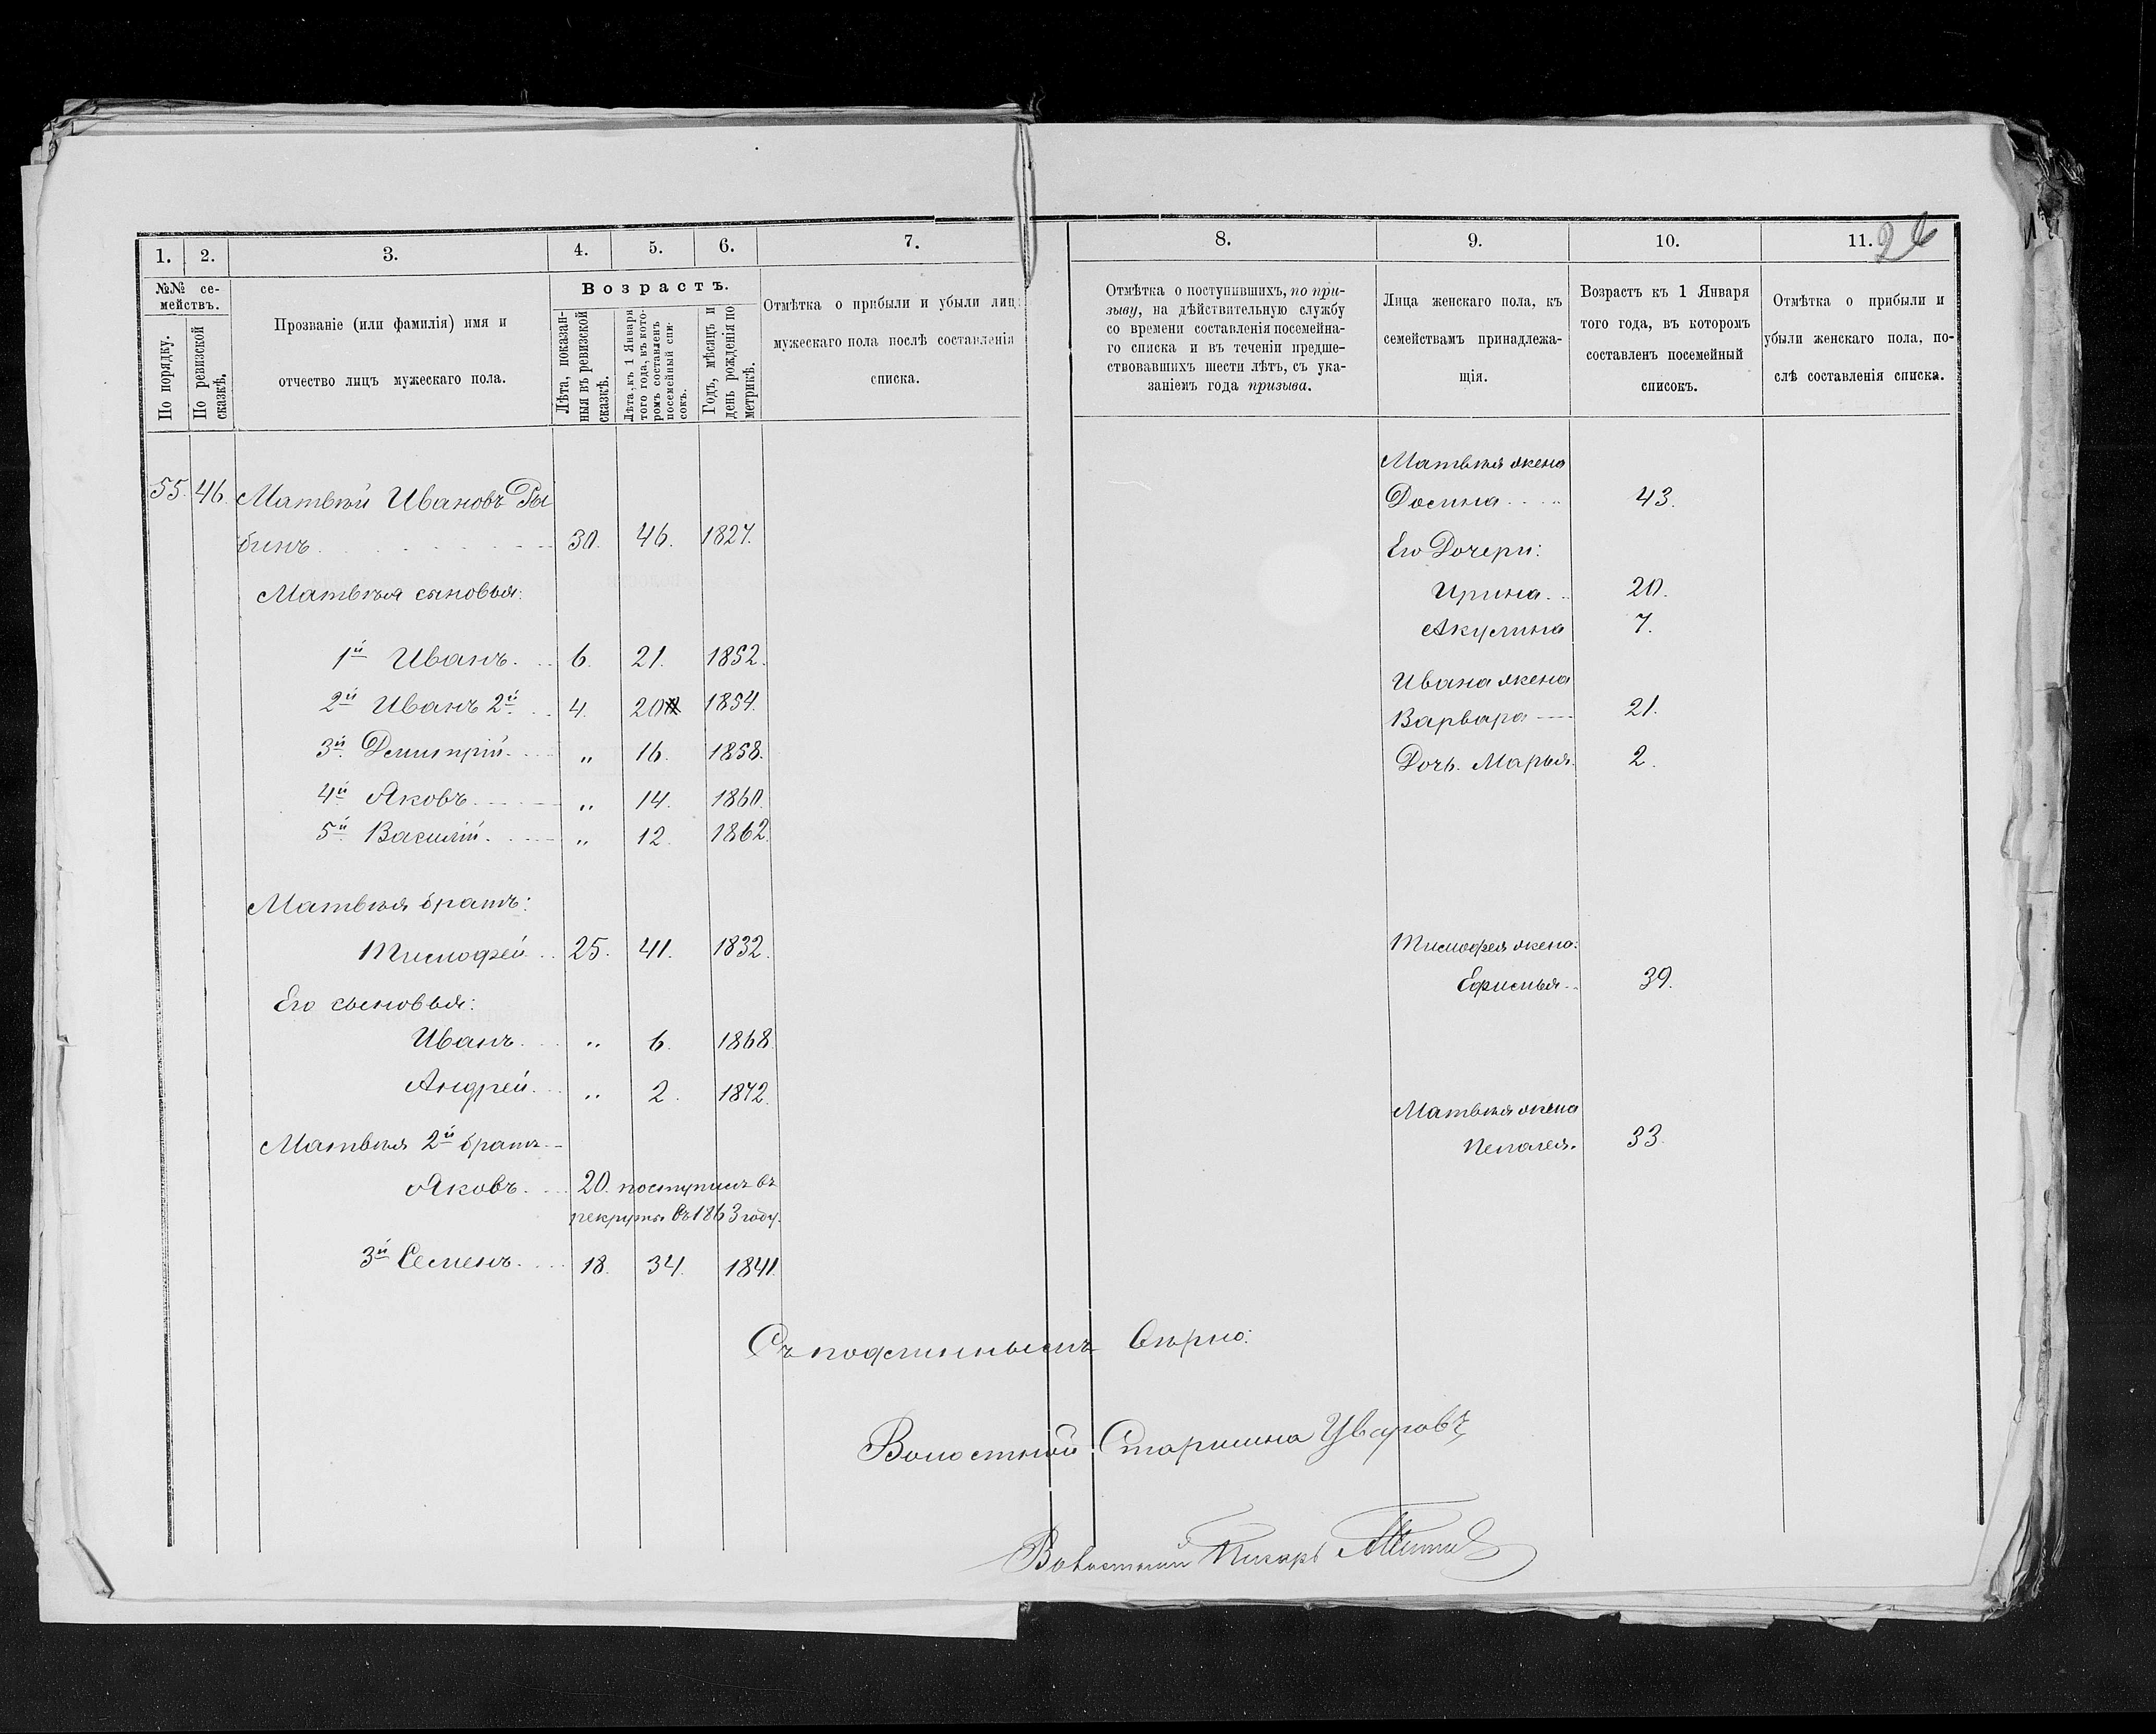 26
1. 2. 3. 4. 5. 6. 7. 8. 9. 10. 11.
№№ се-
мействъ.
По порядку.
По ревизской
сказкѣ.
Прозваніе (или фамилія) имя и
отчество лицъ мужескаго пола.
Возрастъ.
Лѣта, показан-
ныя въ ревизской
сказкѣ.
Лѣта, къ 1 Января
того года, въ кото-
ромъ составленъ
посемейный спи-
сокъ.
Годъ, мѣсяцъ и
день рожденія по
метрикѣ.
Отмѣтка о прибыли и убыли лицъ
мужескаго пола послѣ составленія
списка.
Отмѣтка о поступившихъ, по при-
зыву, на дѣйствительную службу
со времени составленія посемейна-
го списка и въ теченіи предше-
ствовавшихъ шести лѣтъ, съ ука-
заніемъ года призыва.
Лица женскаго пола, къ
семействамъ принадлежа-
щія.
Возрастъ къ 1 Января
того года, въ которомъ
составленъ посемейный
списокъ.
Отмѣтка о прибыли и
убыли женскаго пола, по-
слѣ составленія списка.
55. 46. Матвѣй Ивановъ Ры
бинъ 30. 46. 1827.
Матвѣя сыновья:
1й Иванъ. 6. 21. 1852.
2й Иванъ 2й. 4. 20 1854.
3й Димитрій. „ 16. 1858.
4й Яковъ „ 14. 1860.
5й Василій. „ 12. 1862.
Матвѣя братъ:
Тимофей 25. 41. 1832.
Его сыновья:
Иванъ. „ 6. 1868.
Андрей. „ 2. 1872.
Матвѣя 2й братъ
Яковъ. 20. поступилъ въ
рекруты въ 1863 году.
3й Семенъ. 18. 34. 1841.
Матвѣя жена
Домна 43.
Его Дочери:
Ирина. 20.
Акулина 7.
Ивана жена
Варвара 21.
Дочь. Марья. 2.
Тимофея жена:
Ефимья 39.
Матвѣя жена
Пелагея. 33.
Съ подлиннымъ вѣрно:
Волостной Старшина Уваровъ
Волостной Писарь